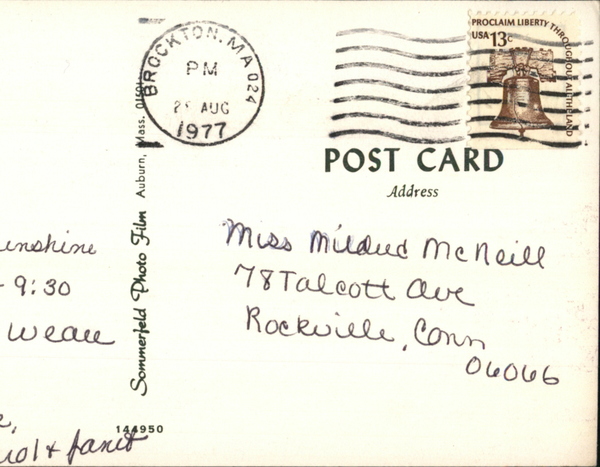 BROCKTON, MA 024
PM
AUG
1977
PROCLAIM LIBERTY THROUGHOUT ALL THE LAND
USA 13c
POST CARD
Address
Miss Mildred McNeill
78 Talcott Ave
Rockville, Conn
06066
9:30
& Janet
Sommerfeld Photo Film Auburn, Mass.
144950